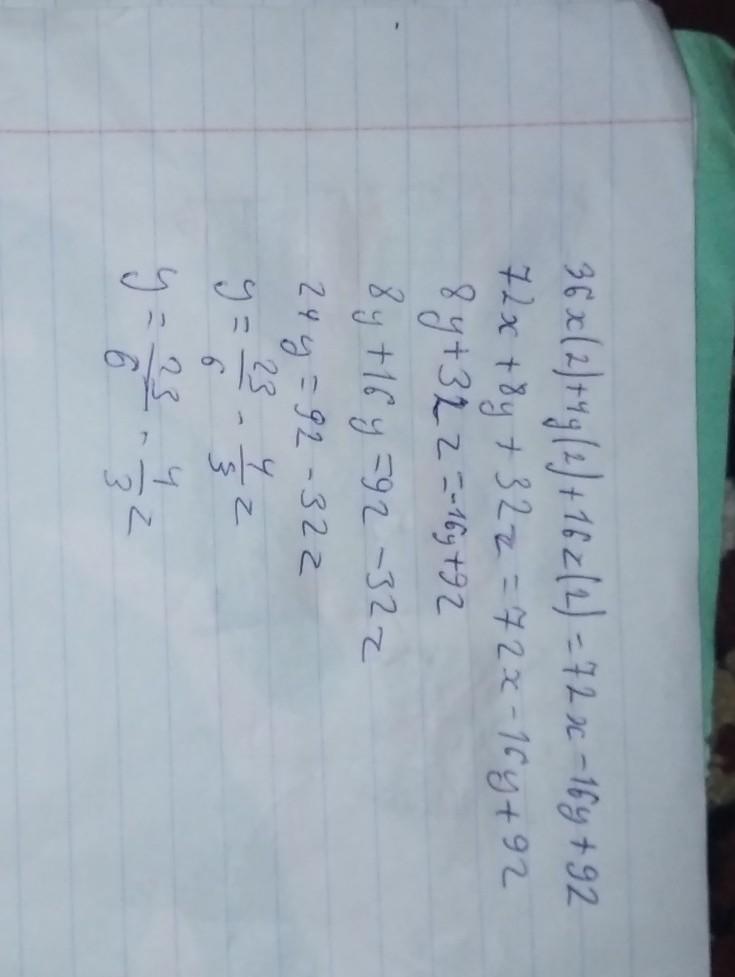 36x(2)+4y(2)+16z(2)=72x-16y+92
72x+8y+32z=72x-16y+92
8y+32z=-16y+92
8y+16y=92-32z
24y=92-32z
y=23/6-4/3z
y=23/6-4/3z